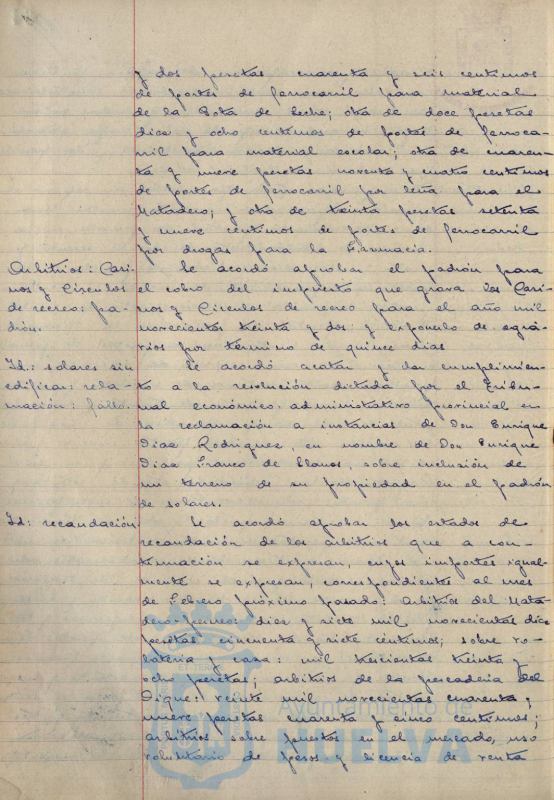 y dos pesetas cuarenta y seis centimos
de portes de ferrocarril para material
de la Gota de Leche; otra de doce pesetas
diez y ocho centimos de portes de ferroca-
rril para material escolar; otra de cuaren-
ta y nueve pesetas noventa y cuatro centimos
de portes de ferrocarril por leña para el
Matadero; y otra de treinta pesetas setenta
y nueve centimos de portes de ferrocarril
por drogas para la Farmacia.
Arbitrios: Casi-
nos y Circulos
de recreo: pa-
drón.
Se acordó aprobar el padrón para
el cobro del impuesto que grava los Casi-
nos y Circulos de recreo para el año mil
novecientos treinta y dos y exponerlo de
por termino de quince dias
Id.: solares sin
edificar: recla-
mación: fallo.
Se acordó acatar y dar cumplimien-
to a la resolución dictada por el Tribu-
nal económico-administrativo provincial en
la reclamación a instancias de Don Enrique
Diaz Rodriguez, en nombre de Don Enrique
Diaz Franco de Llanos, sobre inclusión de
un terreno de su propiedad en el padrón
de solares.
Id: recaudación.
Se acordó aprobar los estados de
recaudación de los arbitrios que a con-
tinuación se expresan, cuyos importes igual-
mente se expresan, correspondientes al mes
de Febrero próximo pasado: Arbitrios del Mata-
dero: diez y siete mil novecientas diez
pesetas cincuenta y siete centimos; sobre vo-
lateria y caza: mil trescientas treinta y
ocho pesetas; arbitrios de la pescaderia del
Dique: veinte mil novecientas cuarenta y
nueve pesetas cuarenta y cinco centimos;
arbitrios sobre puestos en el mercado, uso
voluntario de pesos y licencia de venta
Ayuntamiento de
HUELVA